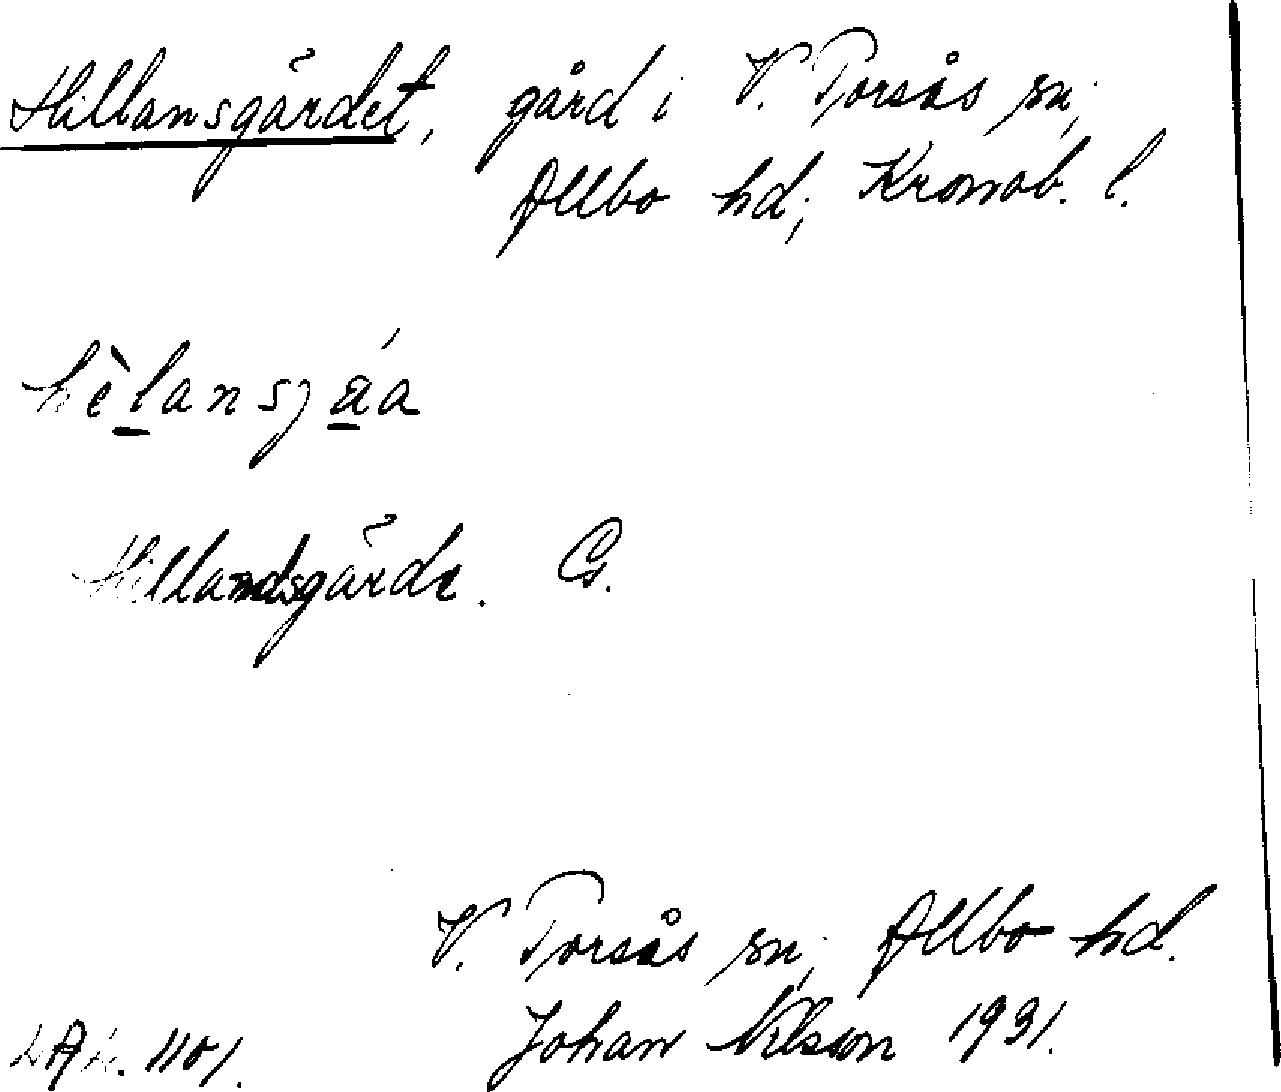 Hillansgärdet, gård i V. Torsås sn,
Allbo hd, Kronob. l.
hèlansjáa
Hillandsgärde. G.
V. Torsås sn, Allbo hd.
Johan Nilsson 1931.
1101.